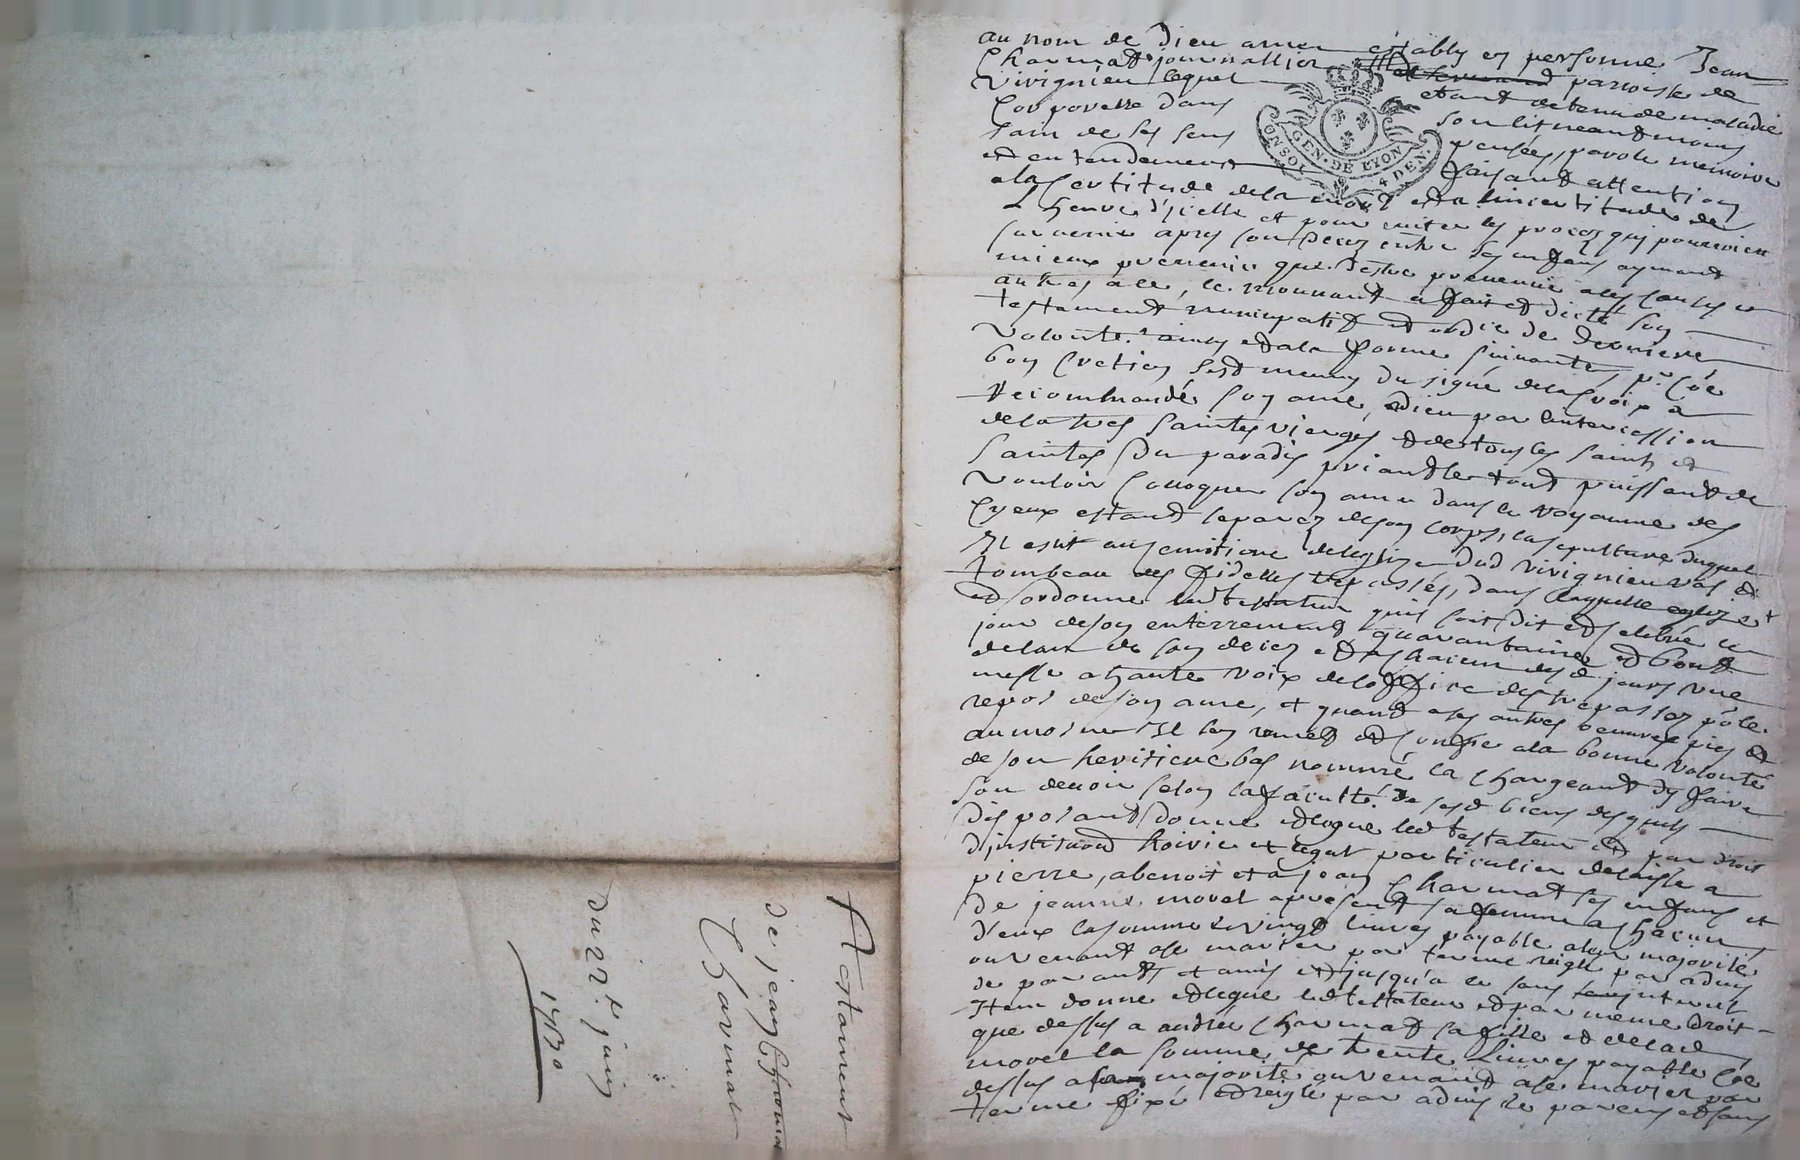 au nom de Dieu amen estably en personne Jean
Charmat journallier paroisse de
Vivignieu lequel etant detenu de maladie
Corporelle dans son lit neantmoins
sain de ses sens pensees, parole memoire
et entendement faisant attention
a la certitude de la mort et a l'incertitude de
l'heure d'icelle et pour eviter les proces qui pourroient
survenir apres son deces entre ses enfans aymant
mieux prevenir que d'estre prevenu a ces causes et
autres a ce, le mouvant a fait et dicté son
testament nuncupatif et ordre de derniere
volonté ainsy et a la forme suivante, pr. coe
bon Cretien s'est muny du signe de la croix a
recommandé son ame, a Dieu par l'intercession
de la tres sainte vierge et de tous les saints et
saintes du paradis priant le tout puissant de
vouloir colloquer son ame dans le royaume des
Cyeux estant separez de son corps, la sepulture duquel
Il eslit au cemitiere de l'eglize dud Vivignieu
tombeau des fidelles trepassés, dans laquelle eglize
et ordonne led testateur quil soit dit et celebré le
jour de son enterrement quarantaine et bout
de l'an de son decez et a chacun des d jours une
messe a haute voix de l'office des trepassez po le
repos de son ame, et quand a ses autres oeuvres pies et
aumosnes Il sen remet et confie a la bonne volonté
de son heritiere bas nommé la chargeant d'y faire
son devoir selon sa faculté. De sesd biens desquels
disposant donne et legue led testateur et par droit
d'institution hoirie et legat particulier delaisse a
pierre, a benoit et a jean Charmat ses enfans et
de jeanne morel a present sa femme a chacun
d'eux la somme de vingt livres payable a leur majorité
ou venant a se marier par terme reiglé par advis
de parants et amis et jusqu'a ce sans interest
Item donne et legue led testateur et par meme droit
que dessus a andree Charmat sa fille et de lad
morel la somme de trente livres payable coe
dessus a sa majorité ou venant a se marier par
terme fixé et reiglé par advis de parens et sans
GEN. DE LYON
4 DEN.
Testament
de jean Charmat
Charmat
du 22e. juin
1730